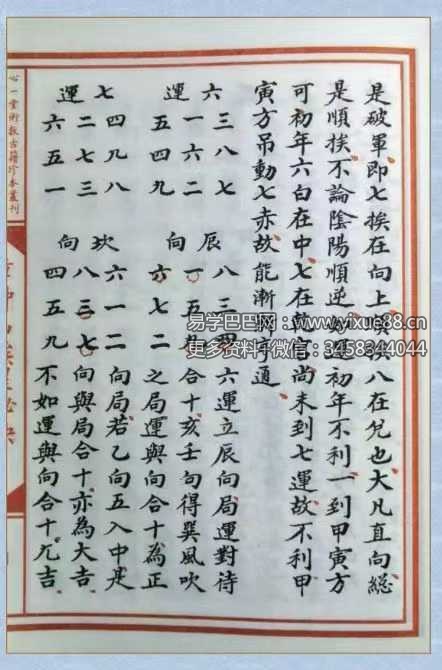 是破軍即七挨在向上順挨八在兌也大凡直向総
是順挨不論陰陽順逆如運初年不利一到甲寅方
可初年六白在中七在乾宮尚未到七運故不利甲
寅方吊動七赤故能漸漸亨通
六運
三八七
一六二
五四九
辰向
八三四
一五九
六七二
六運立辰向局運對待
合十亥壬句得巽風吹
之局運與向合十為正
七運
四九八
二七三
六五一
坎向
六一二
八三七
四五九
向局若乙向五入中是
向與局合十亦為大吉
不如運與向合十尤吉
心一堂術數古籍珍本叢刊
易学巴巴网：www.yixue88.cn
更多资料+微信：3458344044